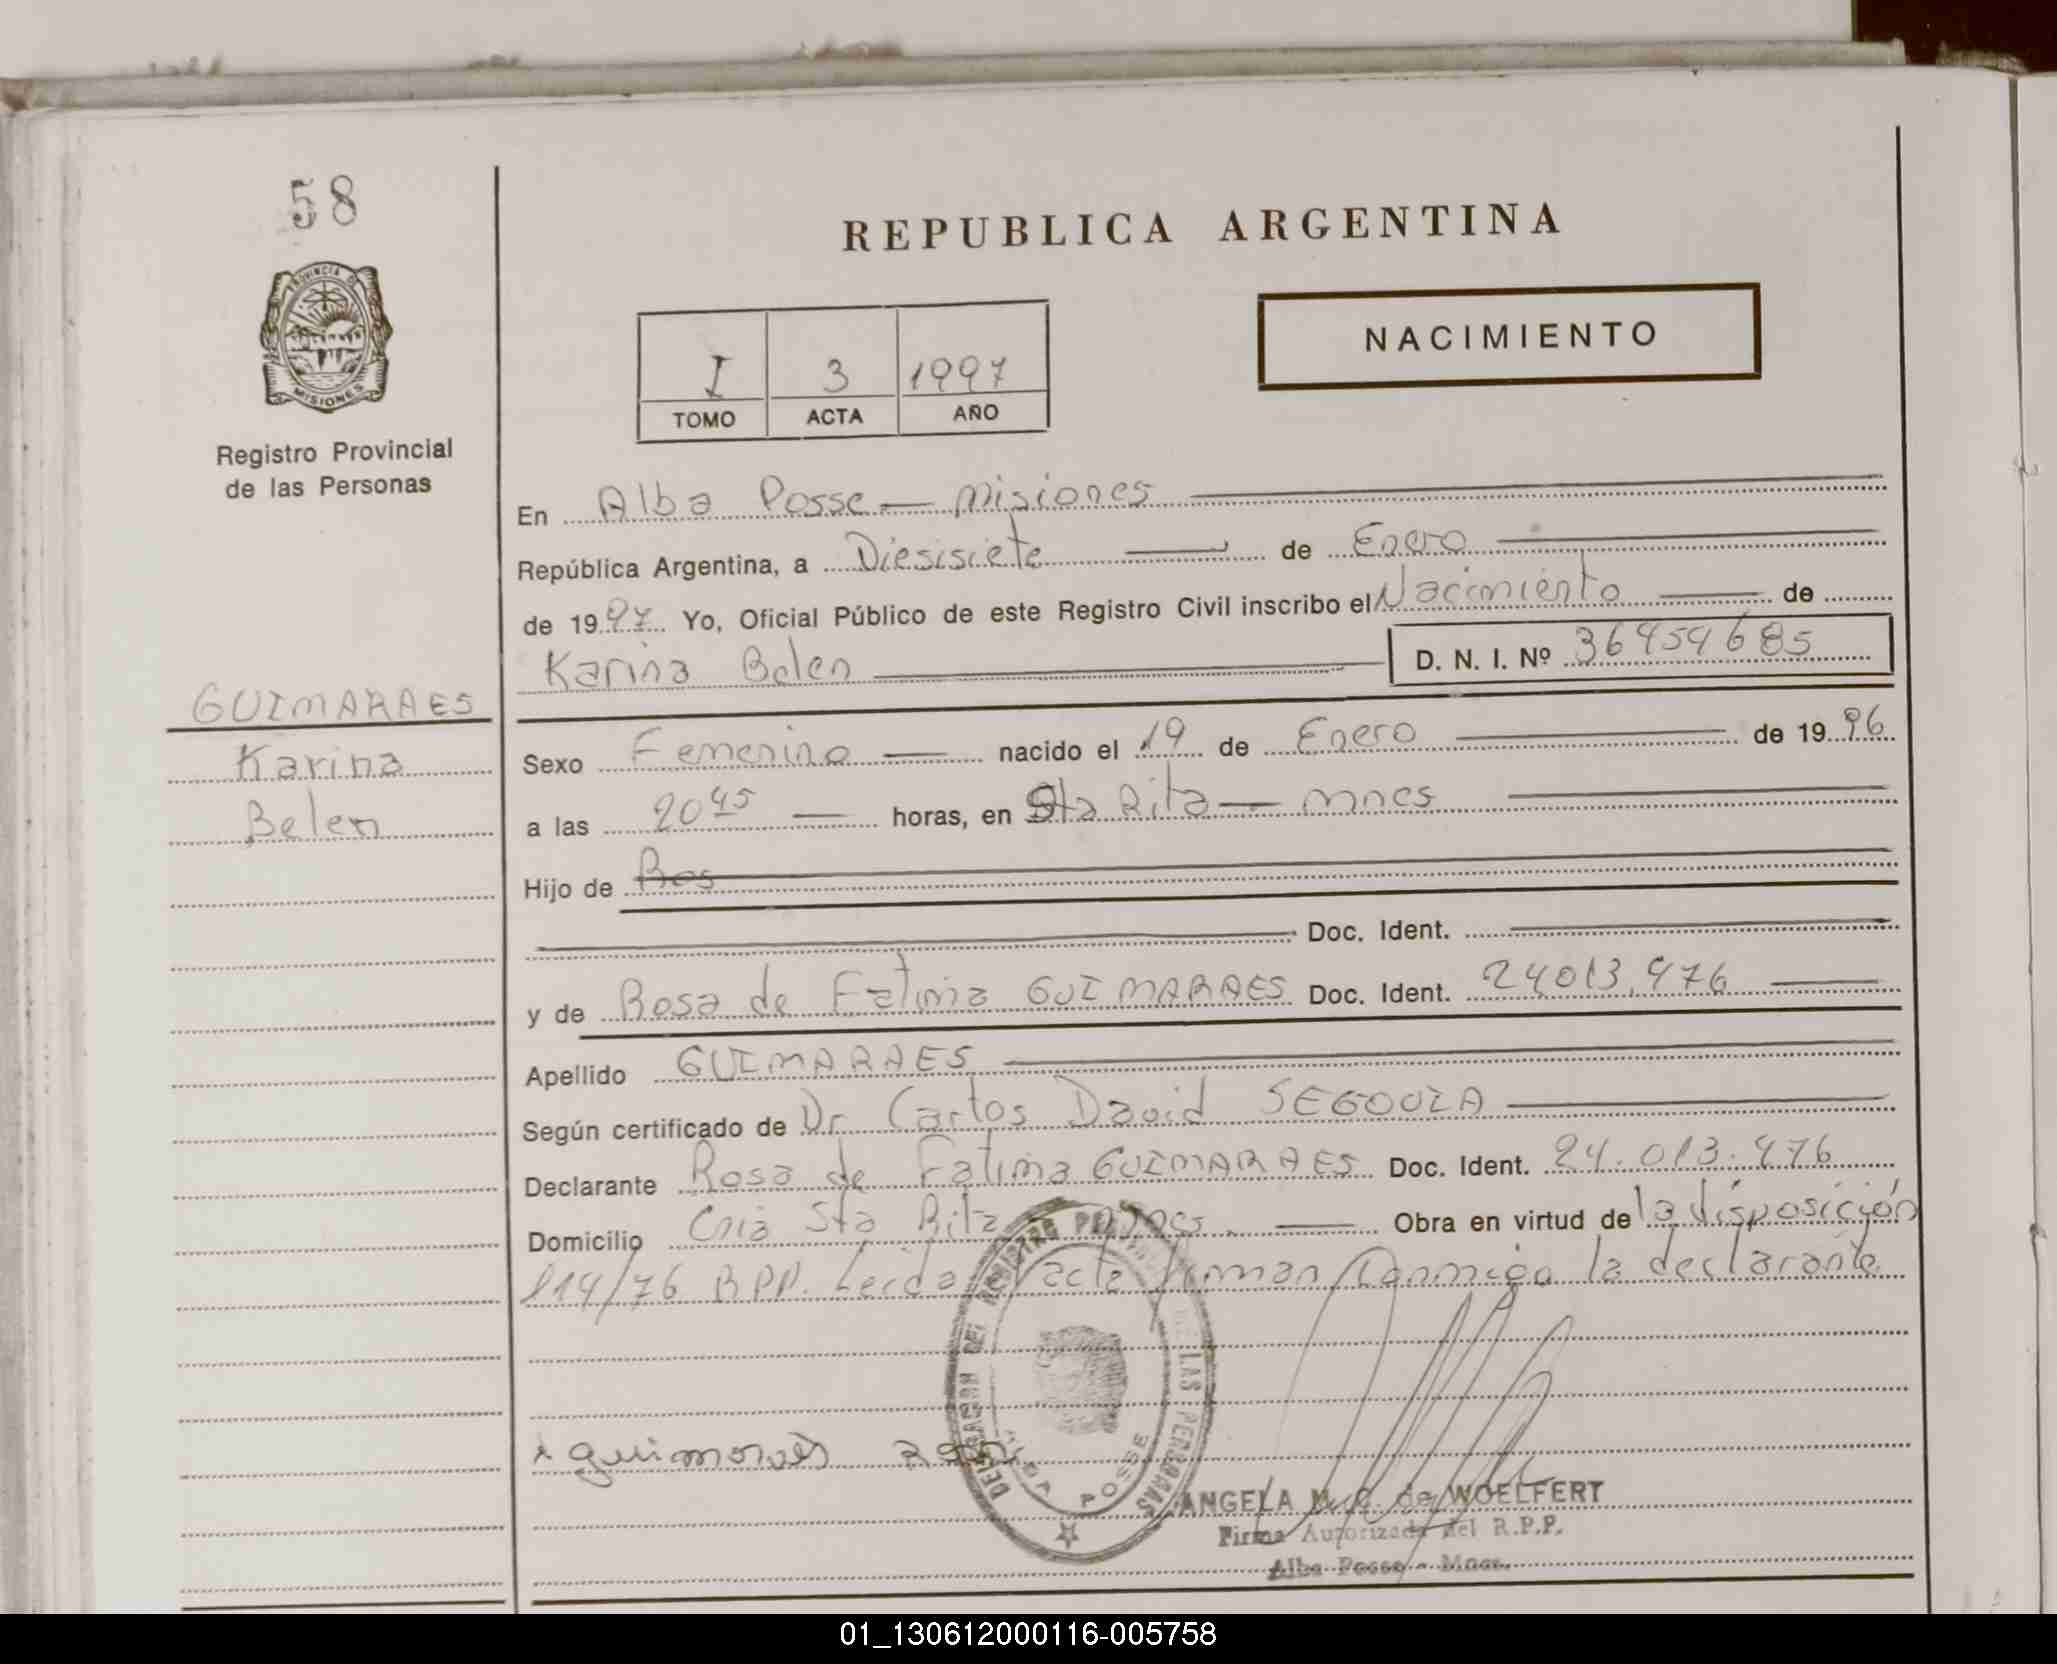 58
REPUBLICA ARGENTINA
PROVINCIA DE
MISIONES
NACIMIENTO
I 3 1997
TOMO ACTA AÑO
Registro Provincial
de las Personas
En Alba Posse — Misiones
República Argentina, a Diesisiete de Enero
de 1997 Yo, Oficial Público de este Registro Civil inscribo el Nacimiento de
Karina Belen D. N. I. Nº 36454685
GUIMARAES
Karina
Belen
Sexo Femenino nacido el 19 de Enero de 1996
a las 20 45 horas, en Sta Rita — Mnes
Hijo de Ros
Doc. Ident.
y de Rosa de Fatima GUIMARAES Doc. Ident. 24013.476
Apellido GUIMARAES
Según certificado de Dr Carlos David SEGOVIA
Declarante Rosa de Fatima GUIMARAES Doc. Ident. 24.013.476
Domicilio Cnia Sta Rita - Mnes. Obra en virtud de la disposición
114/76 RPP. Leida acta firman Conmigo la declarante
guimaraes
DELEGACION DEL REGISTRO DE LAS PERSONAS
ALBA POSSE
ANGELA M. de WOELFERT
Firma Autorizada del R.P.P.
Alba Posse - Mnes.
01_130612000116-005758